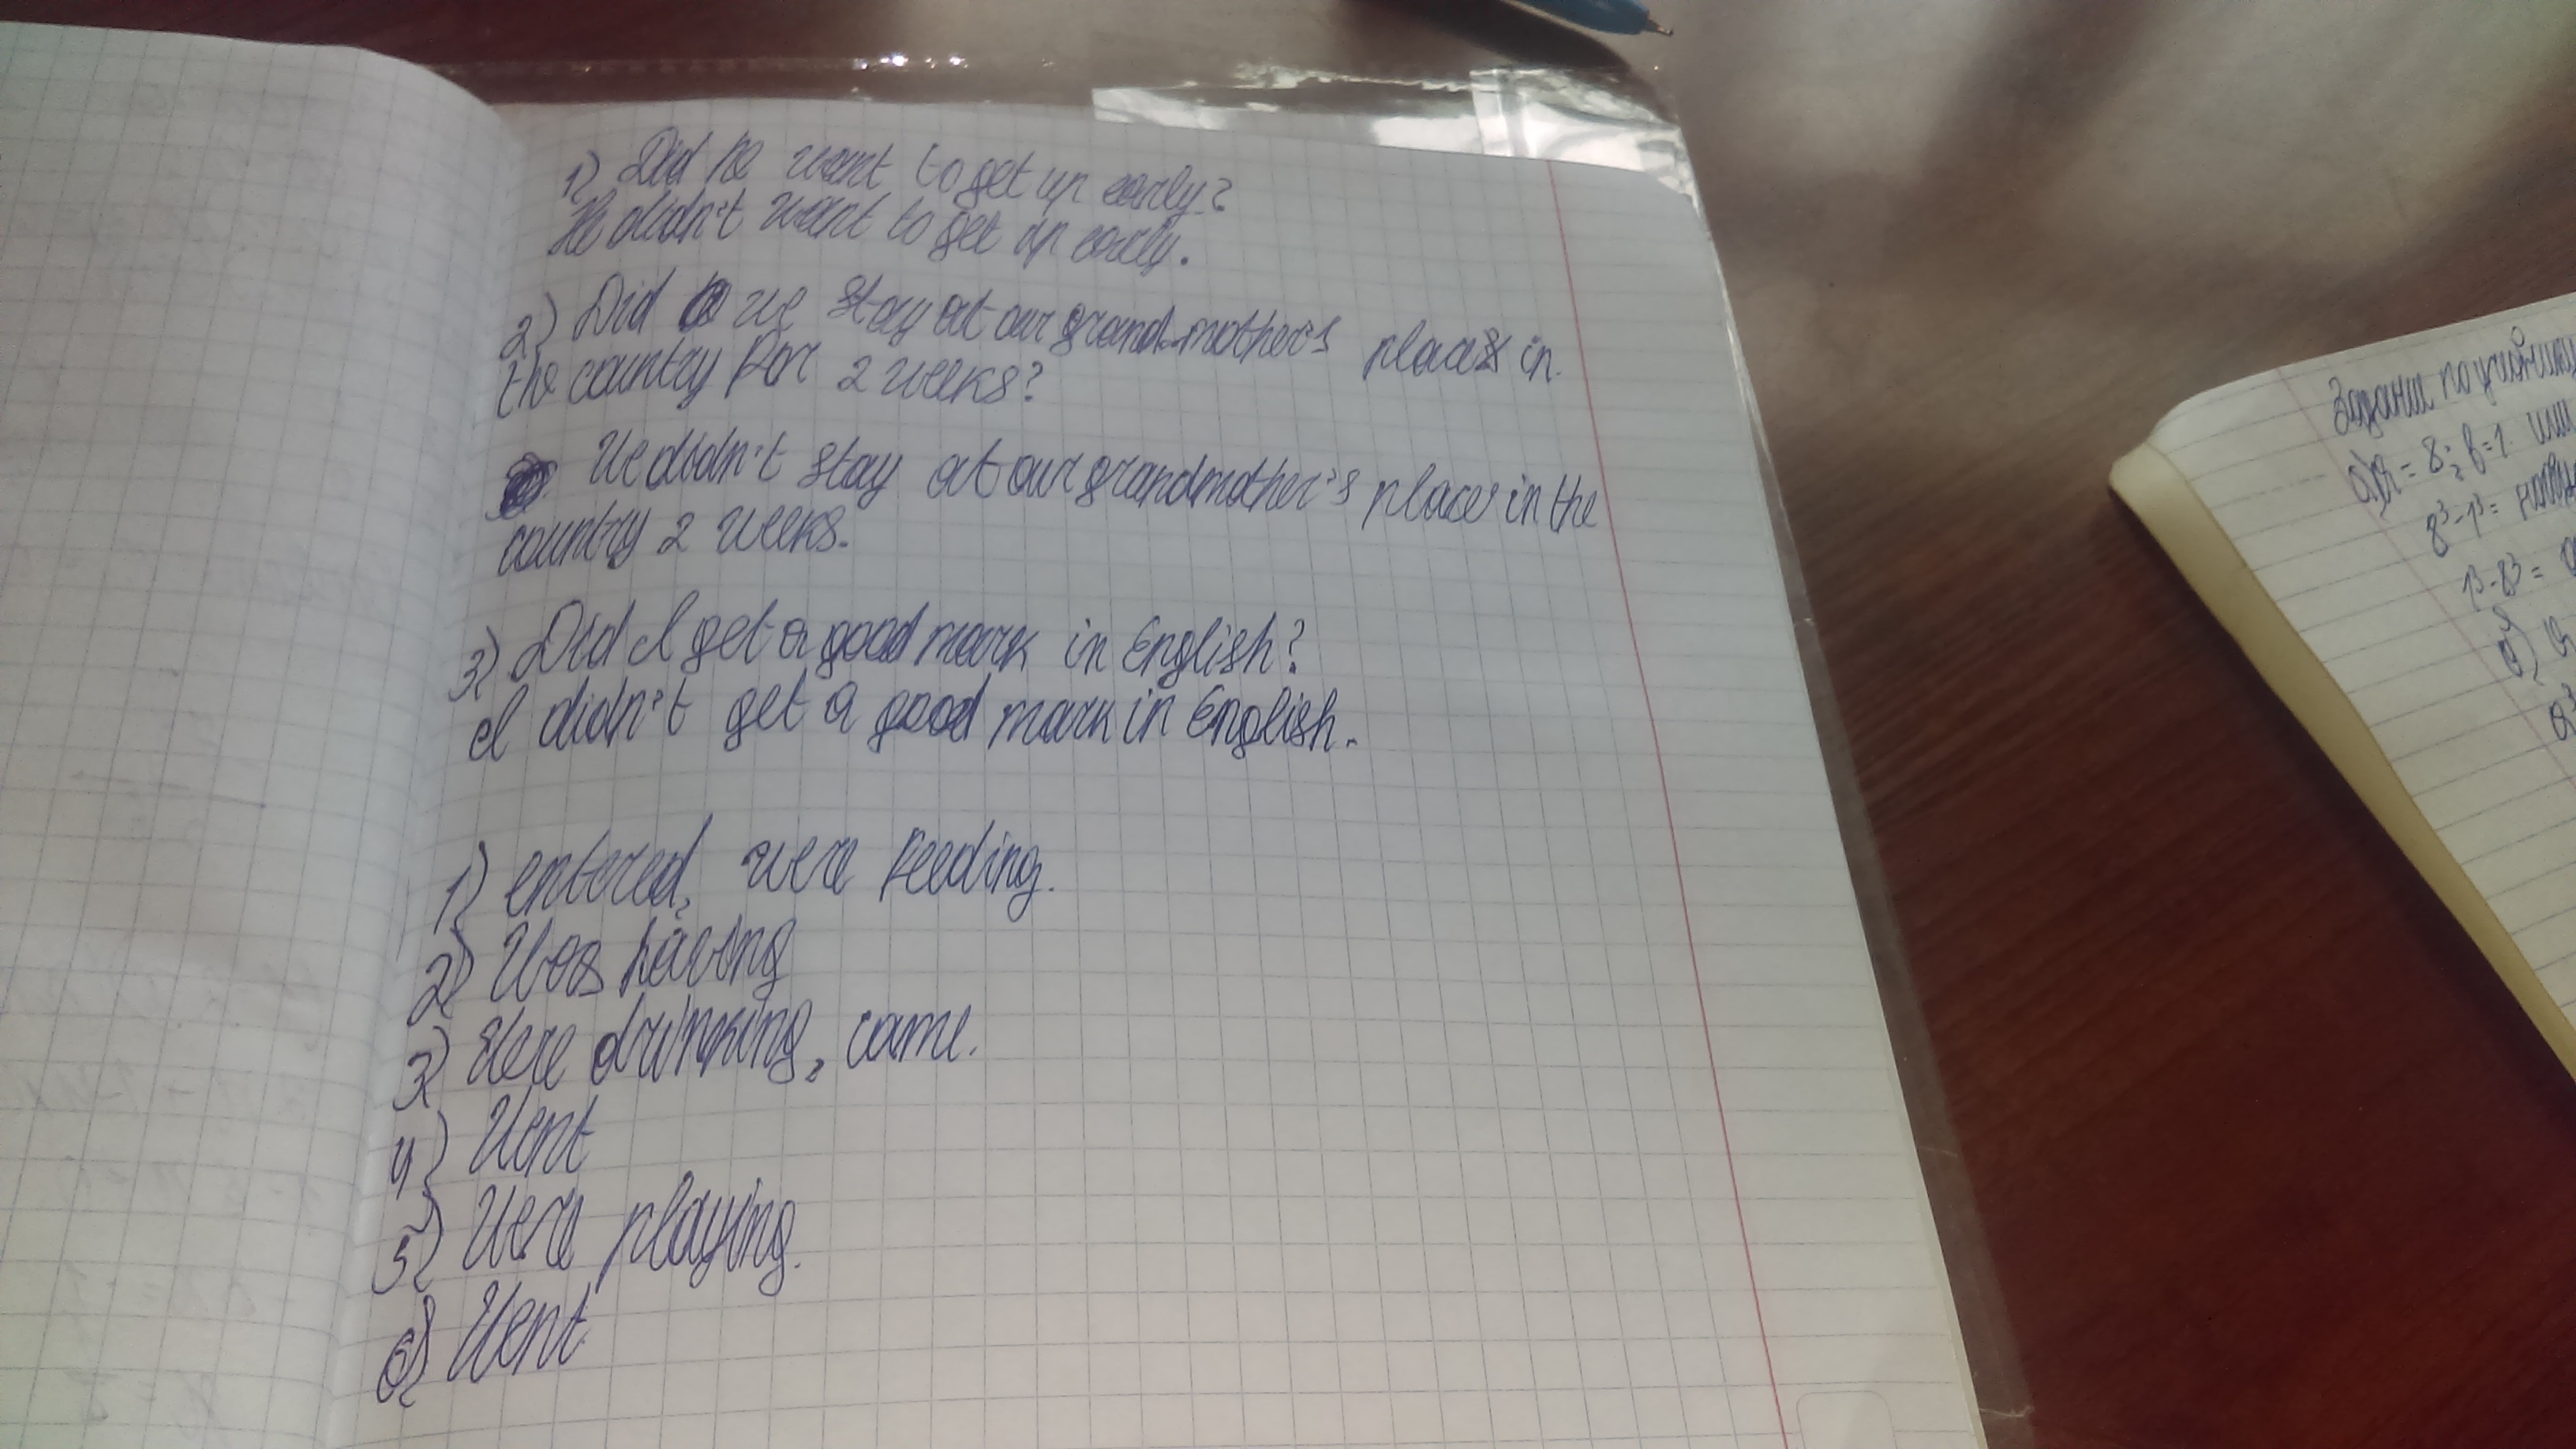 1) Did he want to get up early?
He didn't want to get up early.
2) Did we stay at our grandmother's place in
the country for 2 weeks?
We didn't stay at our grandmother's place in the
country 2 weeks.
3) Did I get a good mark in English?
I didn't get a good mark in English.
1) entered, were feeding.
2) Was having
3) Were drinking, came.
4) Went
5) Were playing.
6) Went
Задание по учебнику
а) а = 8; b=1. или
8³-1³=
1³-8³=